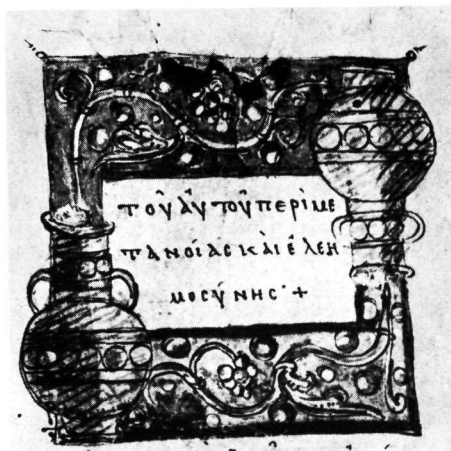 τοῦ ἀυτοῦ περὶ με
τανοίας καὶ ἐλεη
μοσύνης· +